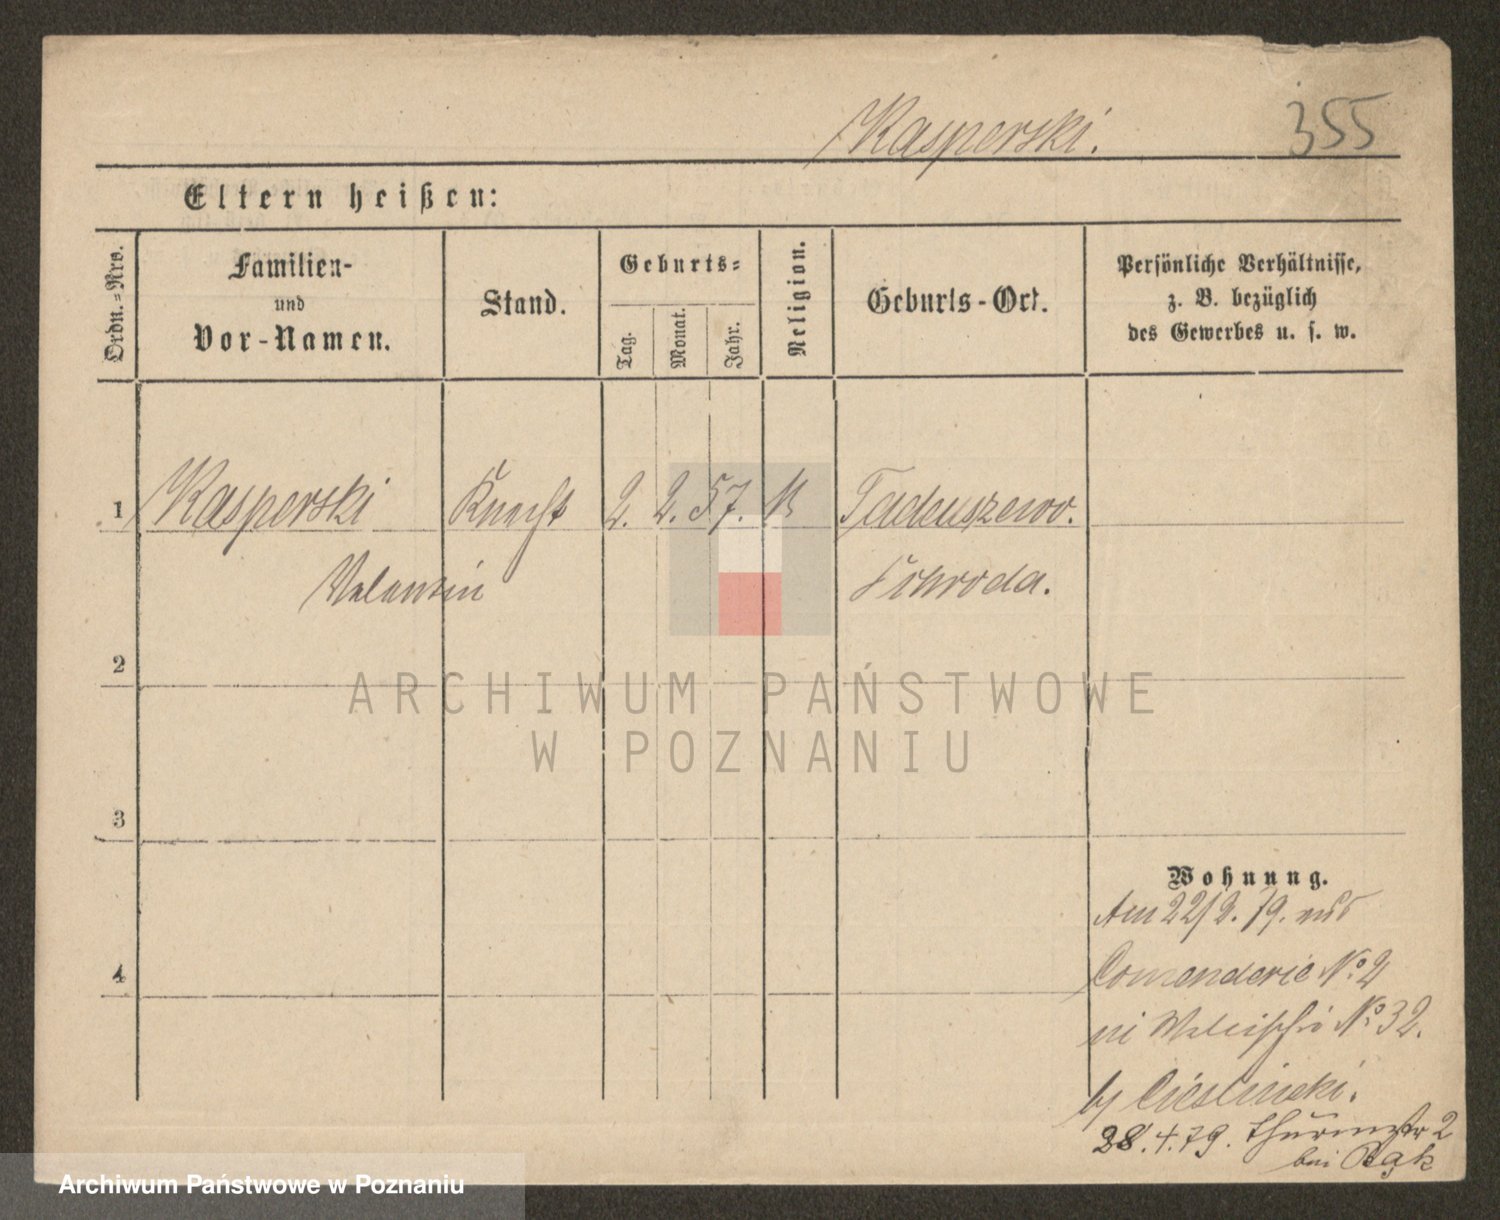 Kasperski.
355
Eltern heißen:
Ordn.=Nro.
Familien-
und
Vor-Namen.
Stand.
Geburts=
Tag.
Monat.
Jahr.
Religion.
Geburts-Ort.
Persönliche Verhältnisse,
z. B. bezüglich
des Gewerbes u. s. w.
1 Kasperski Knecht 2. 2. 57. K Tadeuszewo.
Valentin Schroda.
2
ARCHIWUM PAŃSTWOWE
W POZNANIU
3
Wohnung.
Am 22/2. 79. aus
Comenderie No. 2
4
Wallischei No. 32.
by Cieslinski.
28.4.79. Thurmstr 2
bei Bąk
Archiwum Państwowe w Poznaniu